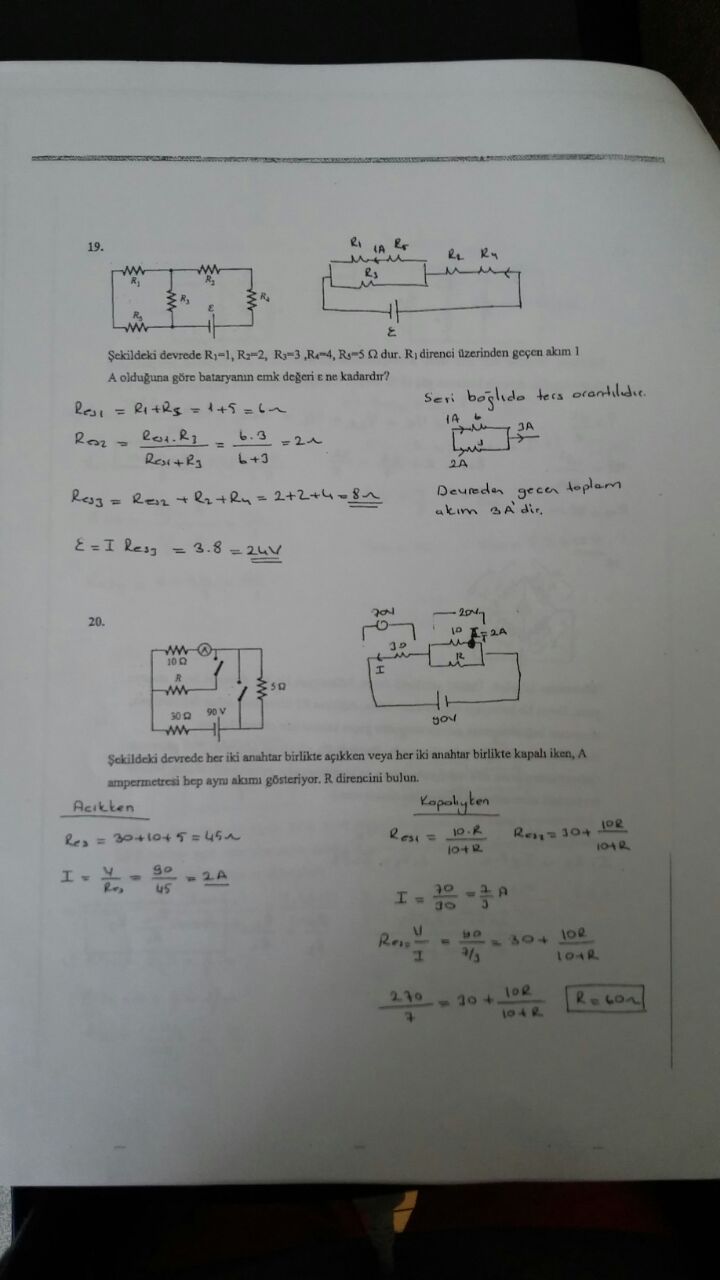 19.
R₁ 1A R₅
R₂ R₄
R₃
ε
R₁ R₂
R₃ ε R₄
R₅
Şekildeki devrede R₁=1, R₂=2, R₃=3 ,R₄=4, R₅=5 Ω dur. R₁ direnci üzerinden geçen akım 1
A olduğuna göre bataryanın emk değeri ε ne kadardır?
Reş1 = R1 + R5 = 1+5 = 6Ω
Reş2 = Reş1.R3 / Reş1+R3 = 6.3 / 6+3 = 2Ω
Reş3 = Reş2 + R2 + R4 = 2+2+4 = 8Ω
ε = I Reş3 = 3.8 = 24V
Seri bağlıda ters orantılıdır.
1A 6 3A
3
2A
Devreden geçen toplam
akım 3A'dir.
20.
70V 20V
30 10 I=2A
I R
90V
10 Ω A
R 5 Ω
30 Ω 90 V
Şekildeki devrede her iki anahtar birlikte açıkken veya her iki anahtar birlikte kapalı iken, A
ampermetresi hep aynı akımı gösteriyor. R direncini bulun.
Açıkken
Reş = 30+10+5 = 45Ω
I = V / Reş = 90 / 45 = 2A
Kapalıyken
Reş1 = 10.R / 10+R Reş2 = 30 + 10R / 10+R
I = 70 / 30 = 7 / 3 A
Reş = V / I = 90 / 7/3 = 30 + 10R / 10+R
270 / 7 = 30 + 10R / 10+R R = 60Ω